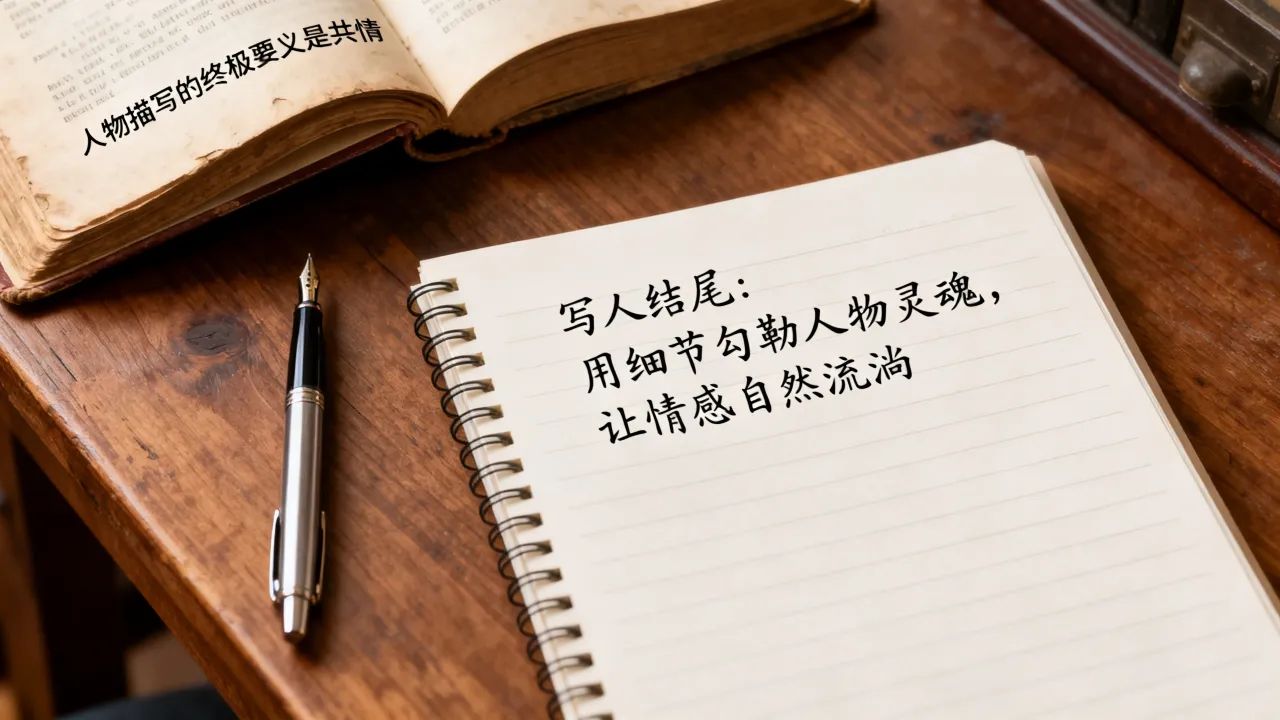 人物描写的终极要义是共情
写人结尾：
用细节勾勒人物灵魂，
让情感自然流淌